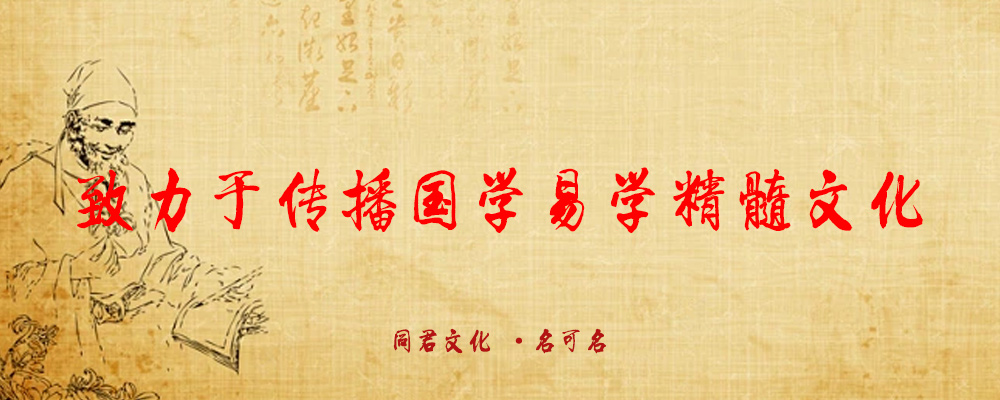 致力于传播国学易学精髓文化
同君文化 ·名可名